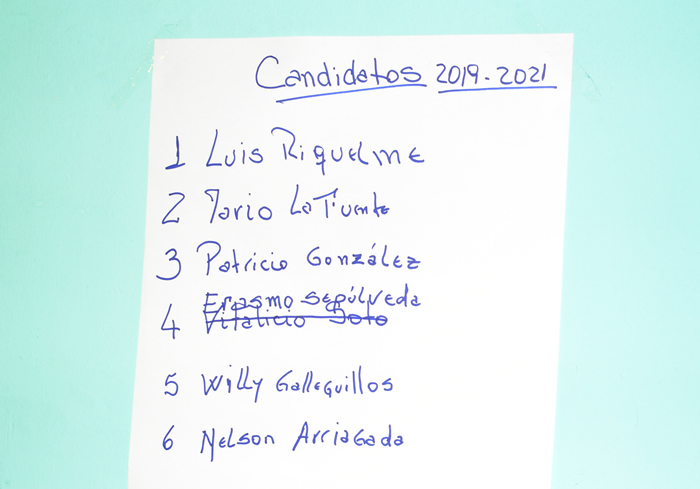 Candidatos 2019-2021
1 Luis Riquelme
2 Mario LaFuente
3 Patricio González
Erasmo Sepúlveda
4 Vitalicio Soto
5 Willy Galleguillos
6 Nelson Arriagada